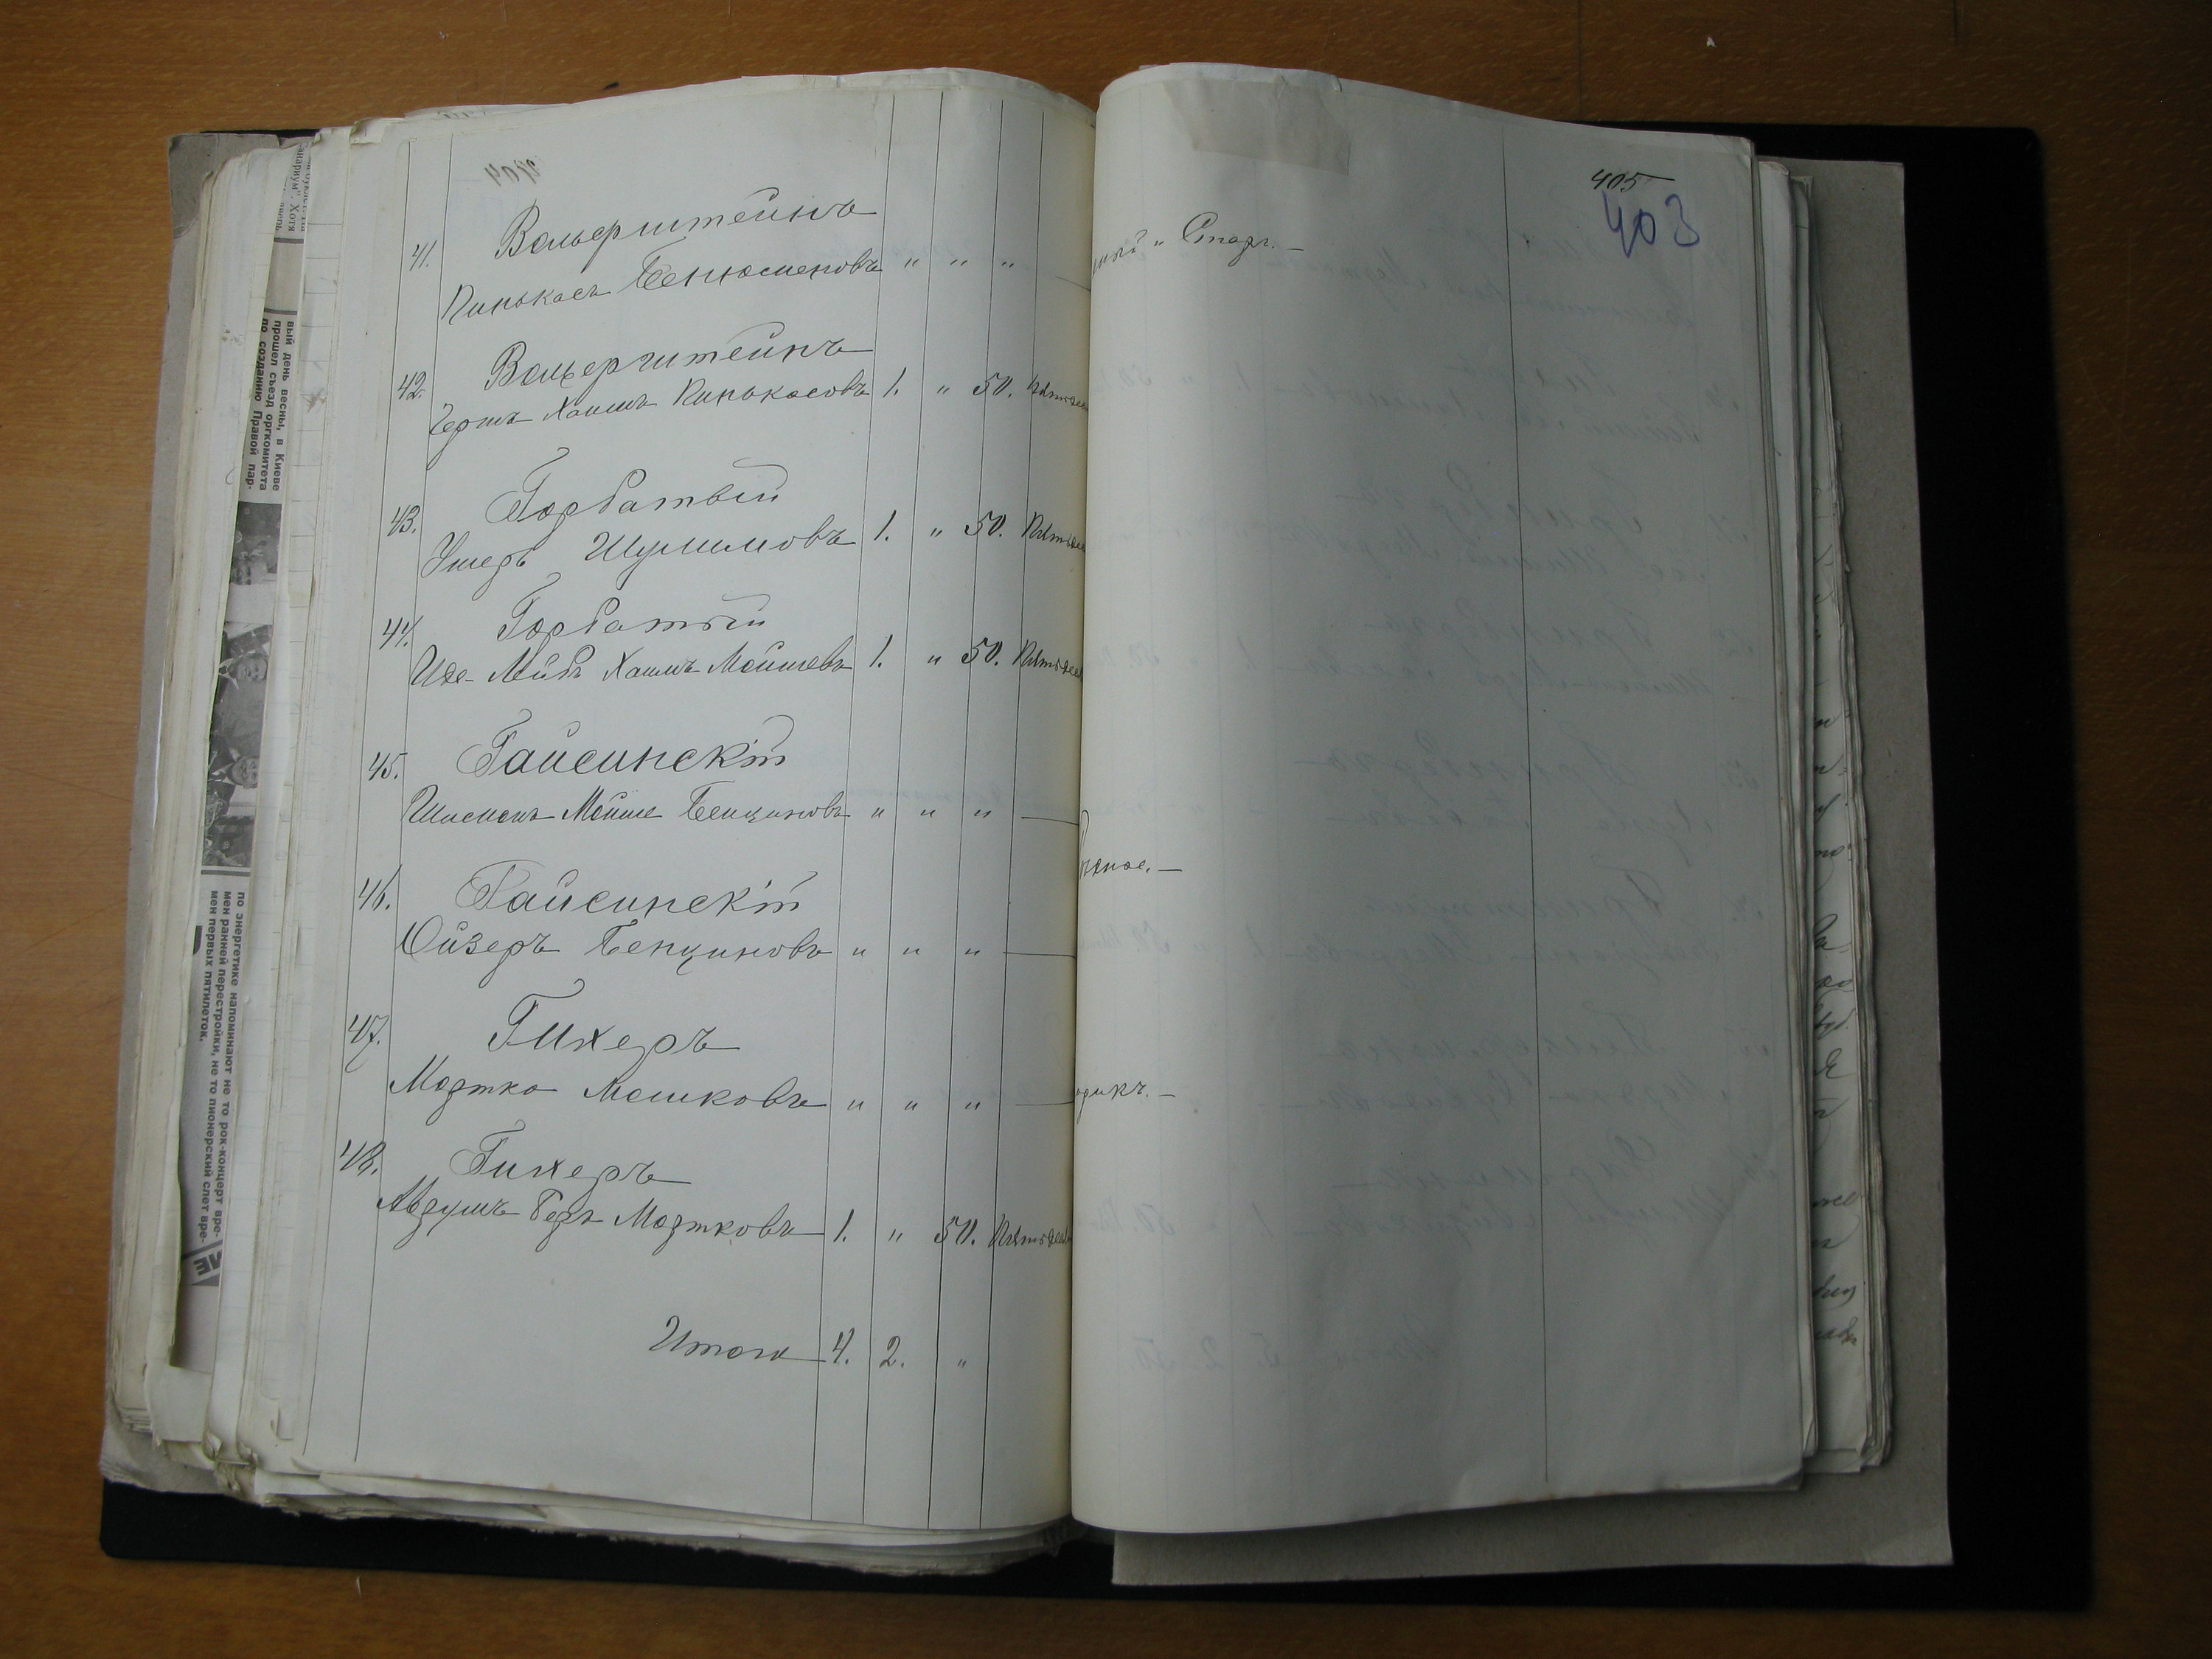 41. Вольерштейнъ
Пинькасъ Бенюменовъ " " " —
42. Вольерштейнъ
Герть Хаимъ Пинькасовъ 1. " 50. Пятьдес
43. Горбатый
Ушеръ Шулимовъ 1. " 50. Пятьдес
44. Горбатый
Иде-Лейбъ Хаимъ Мойшевъ 1. " 50. Пятьдес
45. Гайсинскій
Шмемонъ Мойше Бенционовъ " " " —
46. Гайсинскій
Ойзеръ Бенциновъ " " " —
47. Гихеръ
Мортко Мошковъ " " " —
48. Гихеръ
Авдумъ Беръ Мортковъ 1. " 50. Пятьдес
Итого 4. 2. "
405
403
ный " Старг. —
ряное. —
орикъ. —
вый день весны, в Киеве
прошел съезд оргкомитета
по созданию Правой пар-
по энергетике напоминают не то рок-концерт вре-
мен ранней перестройки, не то пионерский слет вре-
мен первых пятилеток.